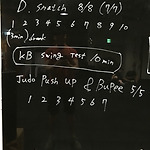 D. Snatch 8/8 (7/7)
1 2 3 4 5 6 7 8 9 10
(3min) break
KB Swing Test 10min
Judo Push up & Bupee 5/5
1 2 3 4 5 6 7